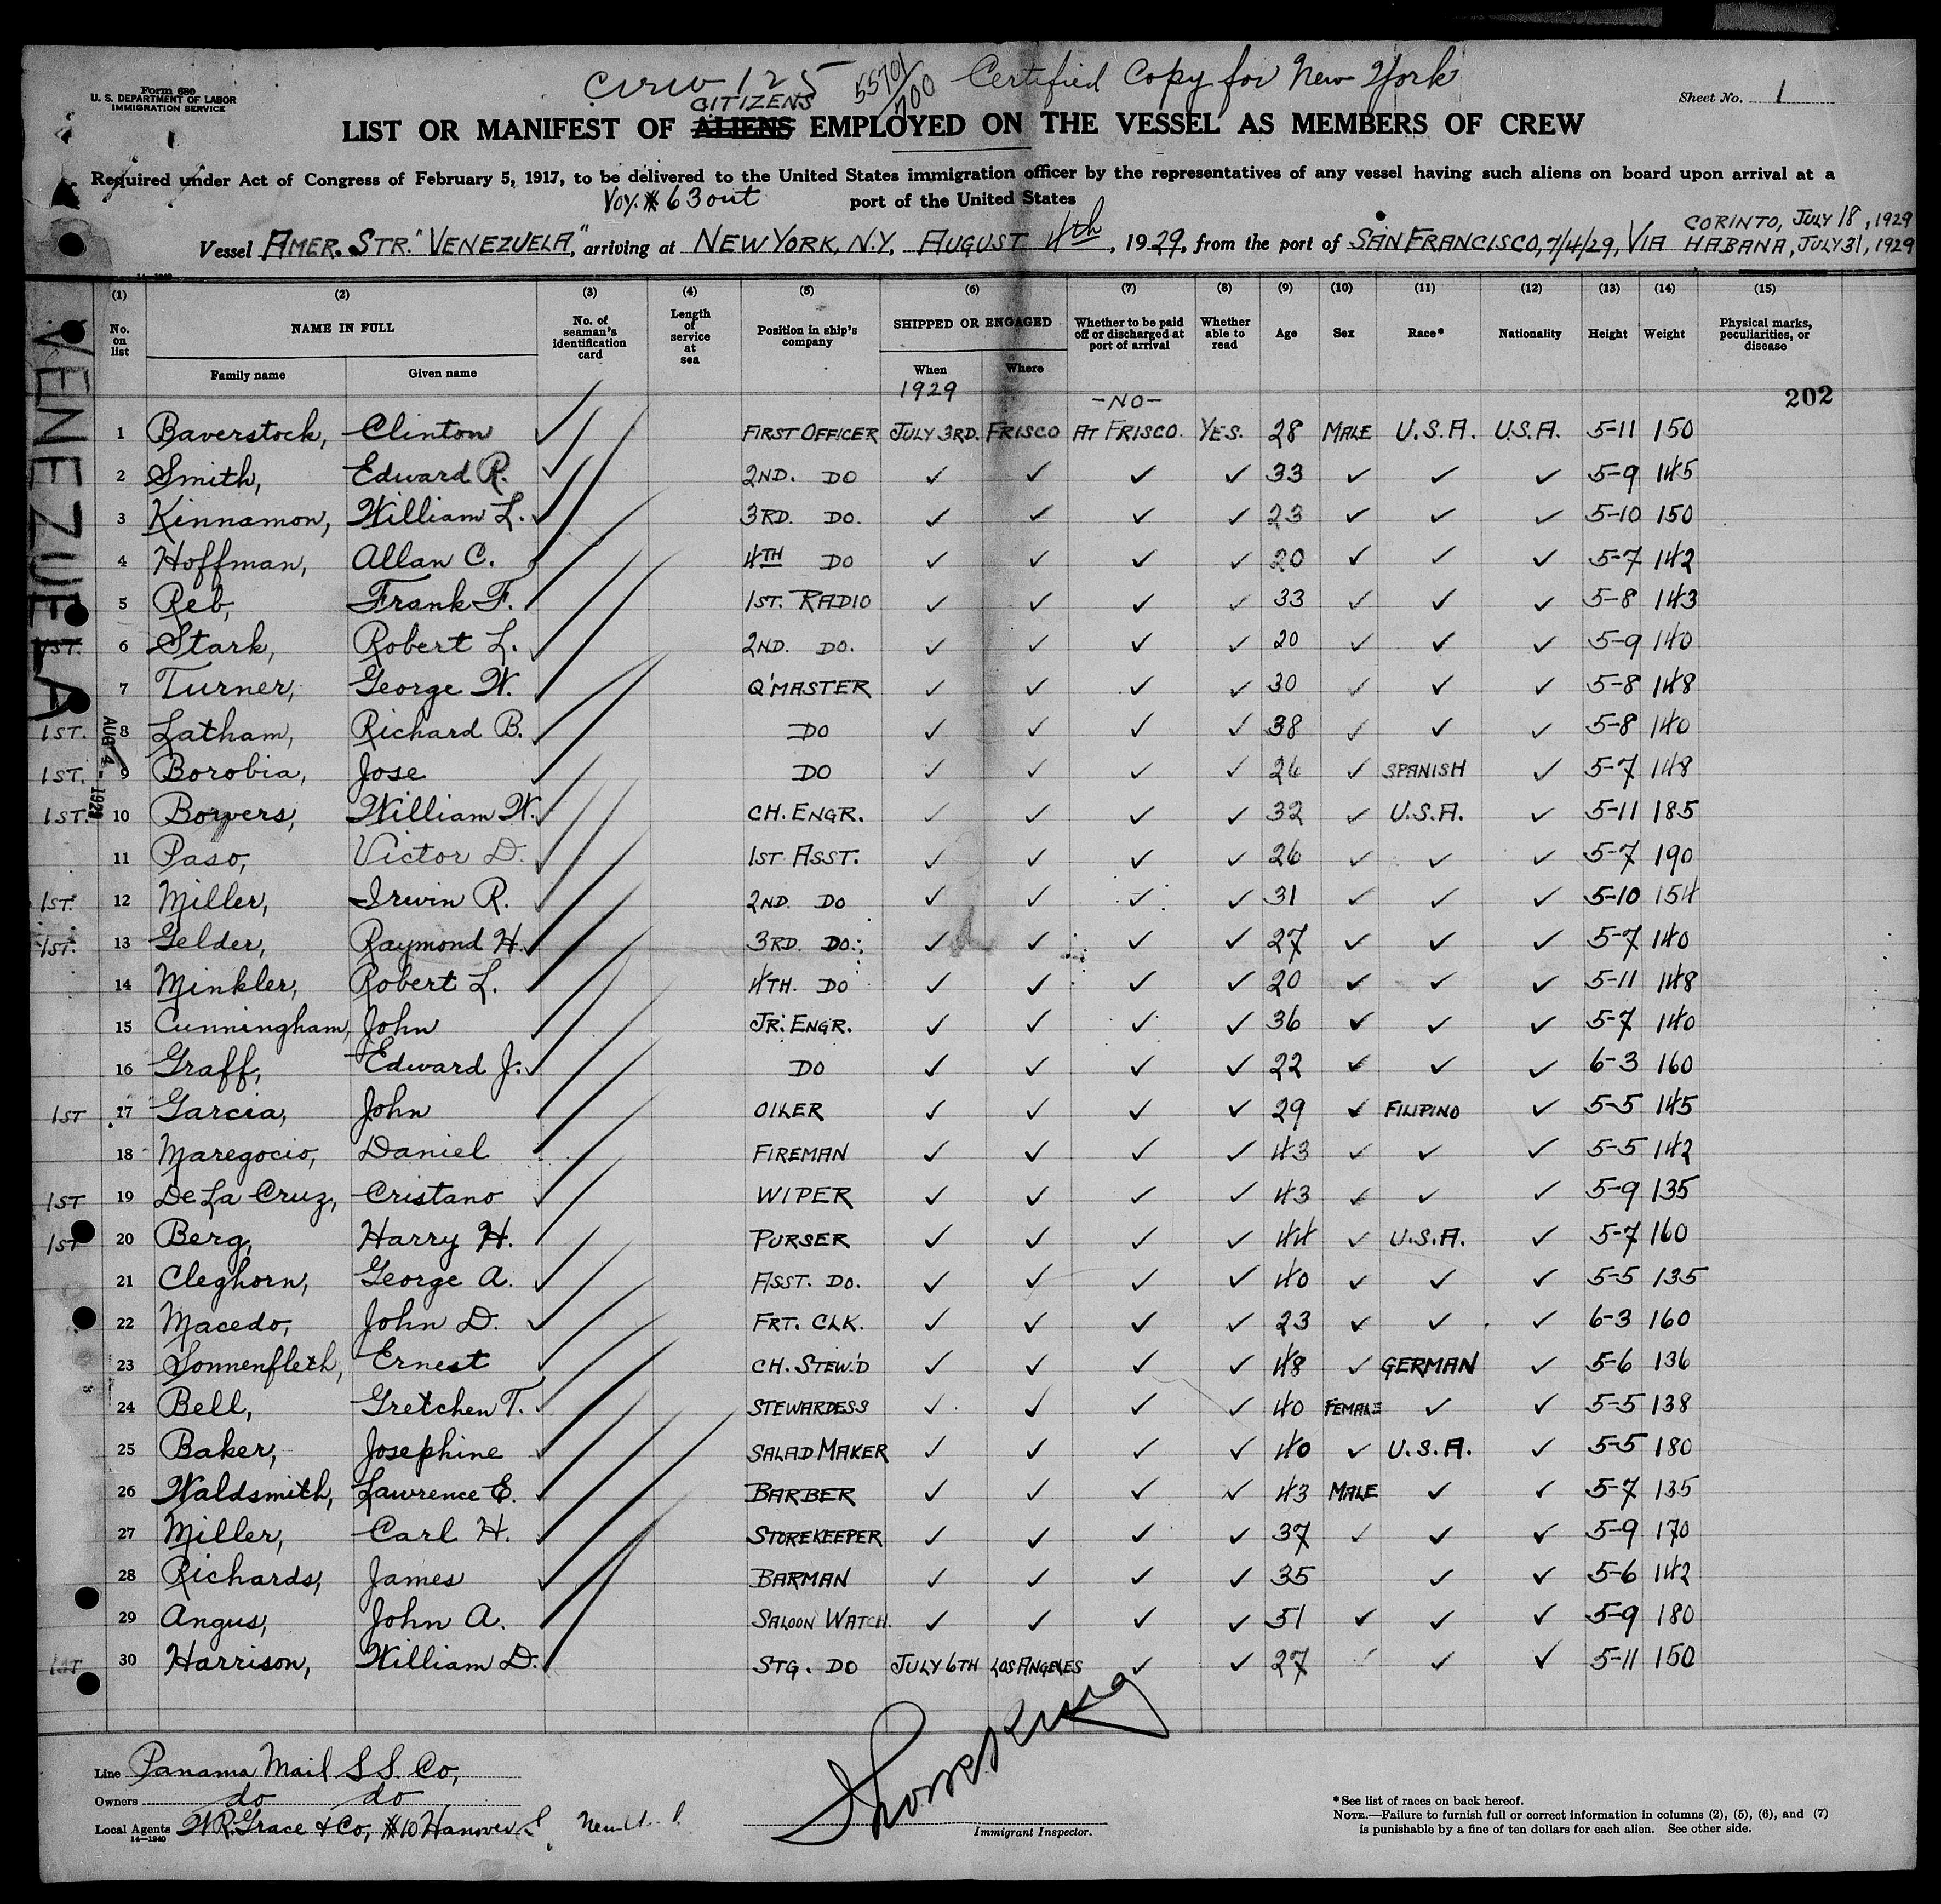 Crew 125 5570/700 Certified Copy for New York
Form 680
U. S. DEPARTMENT OF LABOR
IMMIGRATION SERVICE
Sheet No. 1
CITIZENS
LIST OR MANIFEST OF ALIENS EMPLOYED ON THE VESSEL AS MEMBERS OF CREW
Required under Act of Congress of February 5, 1917, to be delivered to the United States immigration officer by the representatives of any vessel having such aliens on board upon arrival at a
Voy. # 63 out port of the United States
CORINTO, JULY 18, 1929
Vessel AMER. STR. "VENEZUELA," arriving at NEW YORK, N.Y. AUGUST 4th, 1929, from the port of SAN FRANCISCO, 7/4/29, VIA HABANA, JULY 31, 1929
VENEZUELA
AUG 4 - 1929
(1) (2) (3) (4) (5) (6) (7) (8) (9) (10) (11) (12) (13) (14) (15)
No. on list NAME IN FULL No. of seaman's identification card Length of service at sea Position in ship's company SHIPPED OR ENGAGED Whether to be paid off or discharged at port of arrival Whether able to read Age Sex Race* Nationality Height Weight Physical marks, peculiarities, or disease
Family name Given name When Where
1929 -NO- 202
1 Baverstock, Clinton ✓ FIRST OFFICER JULY 3RD. FRISCO AT FRISCO. YES. 28 MALE U.S.A. U.S.A. 5-11 150
2 Smith, Edward R. ✓ 2ND. DO ✓ ✓ ✓ ✓ 33 ✓ ✓ ✓ 5-9 145
3 Kinnamon, William L. ✓ 3RD. DO. ✓ ✓ ✓ ✓ 23 ✓ ✓ ✓ 5-10 150
4 Hoffman, Allan C. ✓ 4TH DO ✓ ✓ ✓ ✓ 20 ✓ ✓ ✓ 5-7 142
5 Reb, Frank F. ✓ 1ST. RADIO ✓ ✓ ✓ ✓ 33 ✓ ✓ ✓ 5-8 143
1ST. 6 Stark, Robert L. ✓ 2ND. DO. ✓ ✓ ✓ ✓ 20 ✓ ✓ ✓ 5-9 140
7 Turner, George W. ✓ Q'MASTER ✓ ✓ ✓ ✓ 30 ✓ ✓ ✓ 5-8 148
1ST. 8 Latham, Richard B. ✓ DO ✓ ✓ ✓ ✓ 38 ✓ ✓ ✓ 5-8 140
1ST. 9 Borobia, Jose ✓ DO ✓ ✓ ✓ ✓ 26 ✓ SPANISH ✓ 5-7 148
1ST. 10 Bowers, William W. ✓ CH. ENGR. ✓ ✓ ✓ ✓ 32 ✓ U.S.A. ✓ 5-11 185
11 Paso, Victor D. ✓ 1ST ASST. ✓ ✓ ✓ ✓ 26 ✓ ✓ ✓ 5-7 190
1ST. 12 Miller, Irwin R. ✓ 2ND. DO ✓ ✓ ✓ ✓ 31 ✓ ✓ ✓ 5-10 154
1ST. 13 Gelder, Raymond H. ✓ 3RD. DO. ✓ ✓ ✓ ✓ 27 ✓ ✓ ✓ 5-7 140
14 Minkler, Robert L. ✓ 4TH. DO ✓ ✓ ✓ ✓ 20 ✓ ✓ ✓ 5-11 148
15 Cunningham, John ✓ JR. ENGR. ✓ ✓ ✓ ✓ 36 ✓ ✓ ✓ 5-7 140
16 Graff, Edward J. ✓ DO ✓ ✓ ✓ ✓ 22 ✓ ✓ ✓ 6-3 160
1ST 17 Garcia, John ✓ OILER ✓ ✓ ✓ ✓ 29 ✓ FILIPINO ✓ 5-5 145
18 Maregocio, Daniel ✓ FIREMAN ✓ ✓ ✓ ✓ 43 ✓ ✓ ✓ 5-5 142
1ST 19 De La Cruz, Cristano ✓ WIPER ✓ ✓ ✓ ✓ 43 ✓ ✓ ✓ 5-9 135
1ST 20 Berg, Harry H. ✓ PURSER ✓ ✓ ✓ ✓ 44 ✓ U.S.A. ✓ 5-7 160
21 Cleghorn, George A. ✓ ASST. DO. ✓ ✓ ✓ ✓ 40 ✓ ✓ ✓ 5-5 135
22 Macedo, John D. ✓ FRT. CLK. ✓ ✓ ✓ ✓ 23 ✓ ✓ ✓ 6-3 160
23 Sonnenfleth, Ernest ✓ CH. STEW'D ✓ ✓ ✓ ✓ 48 ✓ GERMAN ✓ 5-6 136
24 Bell, Gretchen T. ✓ STEWARDESS ✓ ✓ ✓ ✓ 40 FEMALE ✓ ✓ 5-5 138
25 Baker, Josephine ✓ SALAD MAKER ✓ ✓ ✓ ✓ 40 ✓ U.S.A. ✓ 5-5 180
26 Waldsmith, Lawrence E. ✓ BARBER ✓ ✓ ✓ ✓ 43 MALE ✓ ✓ 5-7 135
27 Miller, Carl H. ✓ STOREKEEPER ✓ ✓ ✓ ✓ 37 ✓ ✓ ✓ 5-9 170
28 Richards, James ✓ BARMAN ✓ ✓ ✓ ✓ 35 ✓ ✓ 5-6 142
29 Angus, John A. ✓ SALOON WATCH. ✓ ✓ ✓ ✓ 51 ✓ ✓ ✓ 5-9 180
1ST 30 Harrison, William D. ✓ STG. DO JULY 6TH LOS ANGELES ✓ ✓ 27 ✓ ✓ ✓ 5-11 150
Line Panama Mail S S. Co,
Owners do do
Local Agents W R. Grace & Co, #10 Hanover
14—1240
Immigrant Inspector.
*See list of races on back hereof.
NOTE.—Failure to furnish full or correct information in columns (2), (5), (6), and (7)
is punishable by a fine of ten dollars for each alien. See other side.